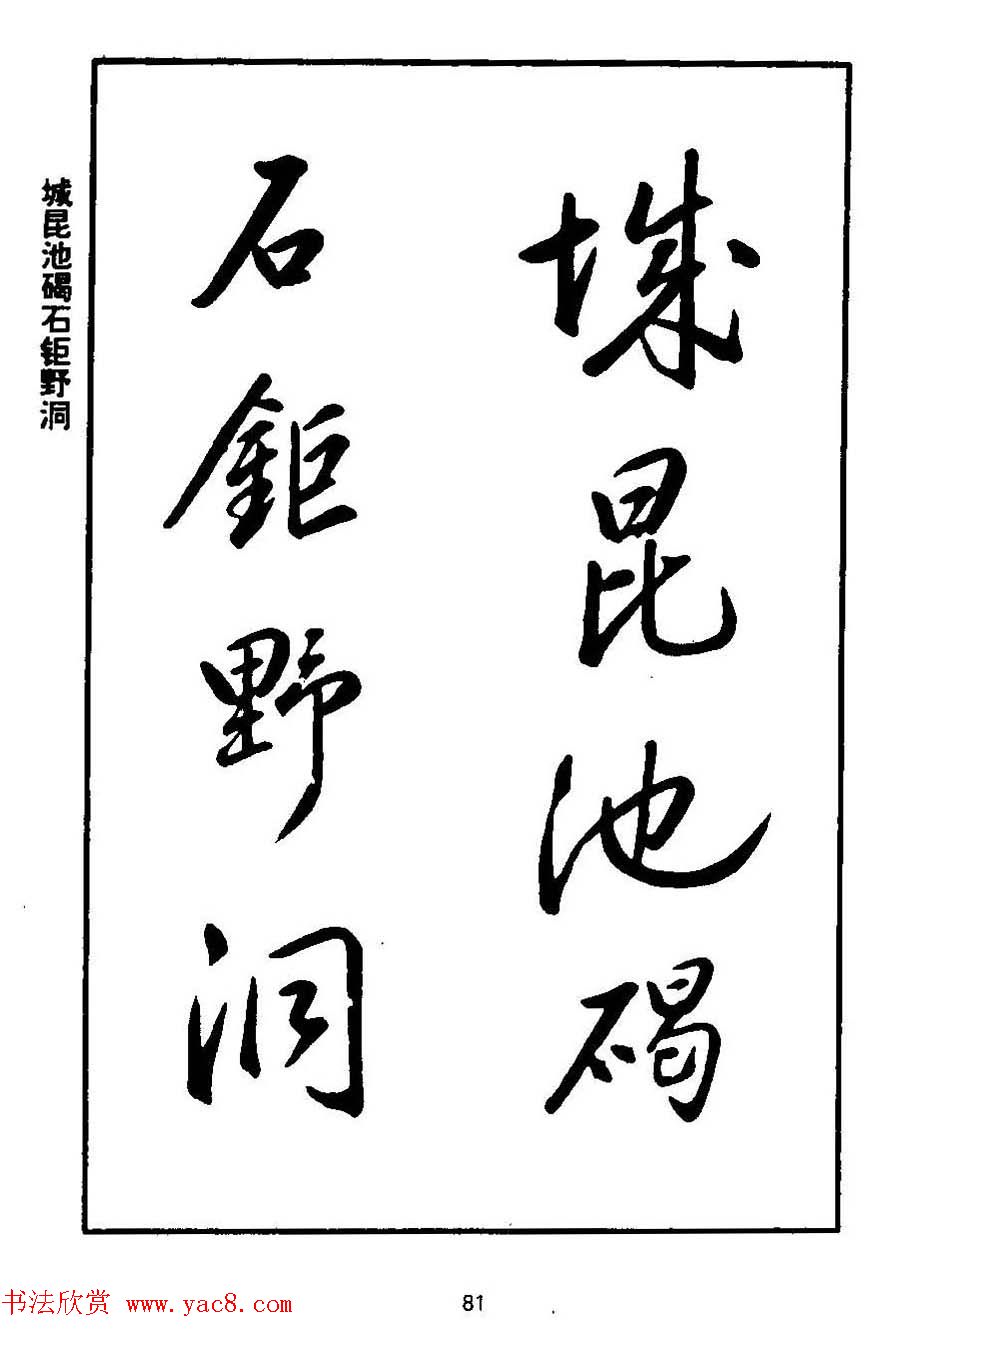 城昆池碣
石鉅野洞
城昆池碣石钜野洞
书法欣赏 www.yac8.com
81